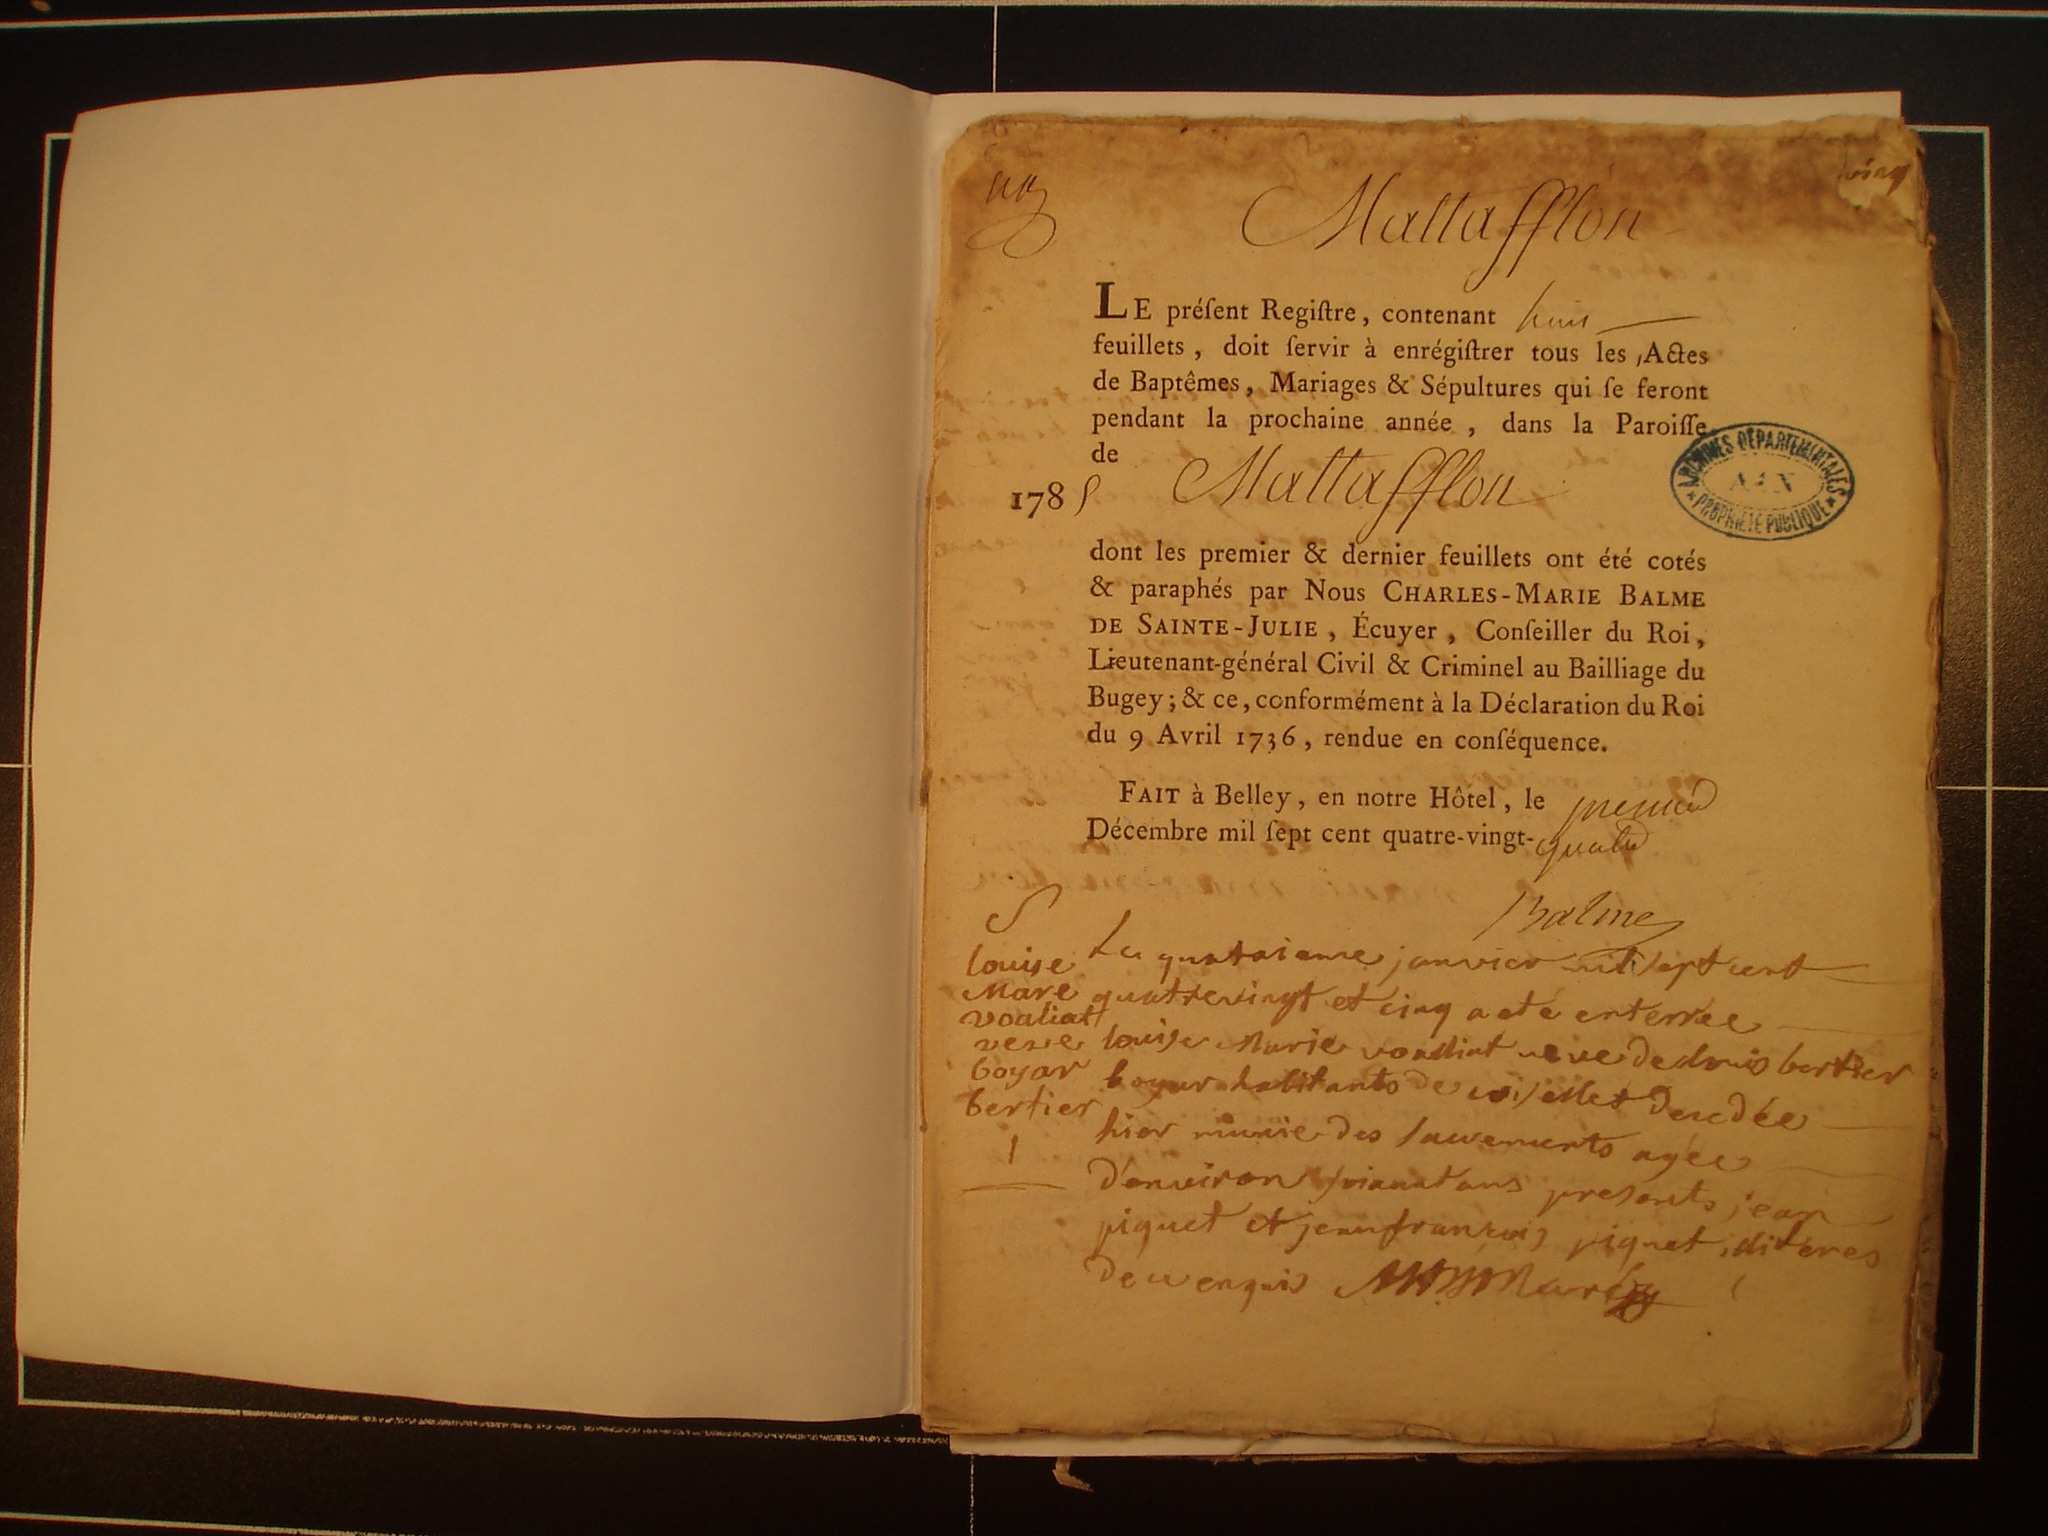 Mattafflon
LE préſent Regiſtre, contenant huit
feuillets, doit ſervir à enrégiſtrer tous les Actes
de Baptêmes, Mariages & Sépultures qui ſe feront
pendant la prochaine année, dans la Paroiſſe
de Mattafflon
1785
ARCHIVES DÉPARTEMENTALES
AIN
PROPRIÉTÉ PUBLIQUE
dont les premier & dernier feuillets ont été cotés
& paraphés par Nous CHARLES-MARIE BALME
DE SAINTE-JULIE, Écuyer, Conſeiller du Roi,
Lieutenant-général Civil & Criminel au Bailliage du
Bugey; & ce, conformément à la Déclaration du Roi
du 9 Avril 1736, rendue en conſéquence.
FAIT à Belley, en notre Hôtel, le premier
Décembre mil ſept cent quatre-vingt-quatre
Balme
S
louise
Mare
voaliat
veve
boyar
bertier
1
Le quatrieme janvier mil sept cent
quatrevingt et cinq a eté enterrée
louise Marie voalliat veve de louis bertier
boyar habitants de decedée
hier munie des agée
d'environ ans presents jean
piquet et jean françois piquet
de ce enquis